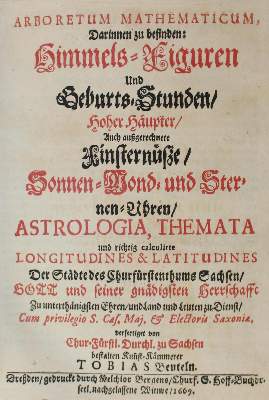 ARBORETUM MATHEMATICUM,
Darinnen zu befinden:
Himmels-Figuren
Und
Geburts-Stunden/
Hoher Häupter/
Auch außgerechnete
Finsternüße/
Sonnen-Mond- und Ster-
nen-Uhren/
ASTROLOGIA, THEMATA
und richtig calculirte
LONGITUDINES & LATITUDINES
Der Städte des Churfürstenthums Sachsen/
GOTT und seiner gnädigsten Herrschafft
Zu unterthänigsten Ehren/und Land und Leuten zu Dienst/
Cum privilegio S. Cæs. Maj. & Electoris Saxoniæ,
verfertiget von
Chur-Fürstl. Durchl. zu Sachsen
bestalten Kunst-Kämmerer
TOBIAS Beuteln.
Dreßden/ gedruckt durch Melchior Bergens/ Churf. S. Hoff-Buchdr.
sel. nachgelassene Witwe/ 1669.